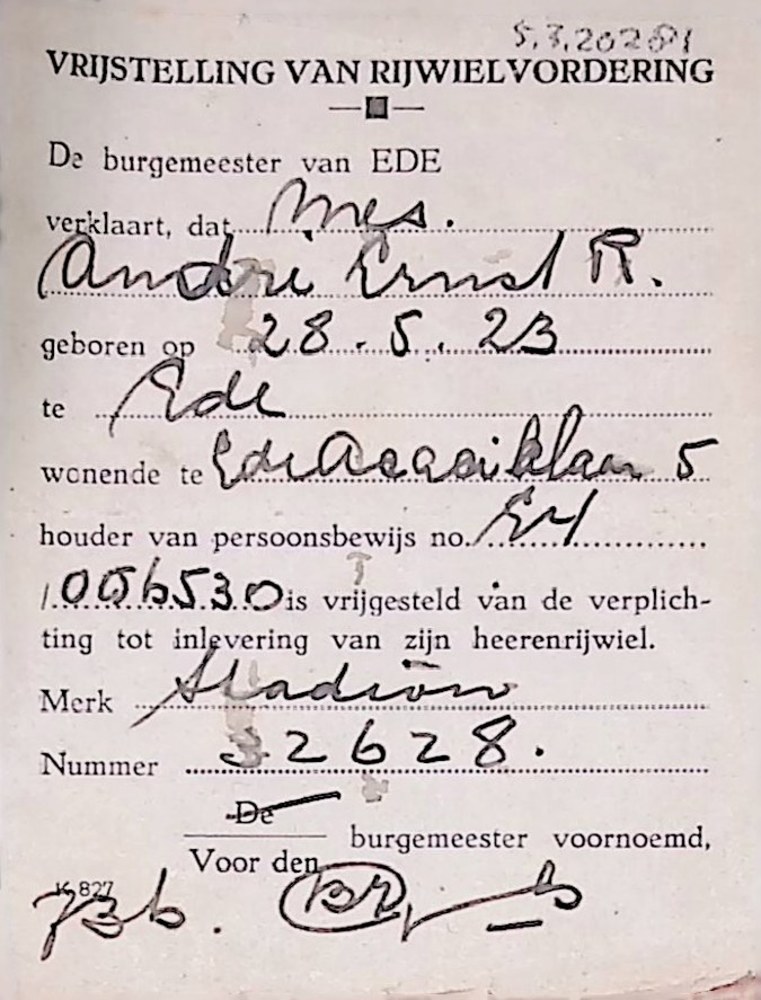 VRIJSTELLING VAN RIJWIELVORDERING
De burgemeester van EDE
verklaart, dat Mes.
André Ernst R.
geboren op 28.5.23
te Ede
wonende te Ede Acacialaan 5
houder van persoonsbewijs no. E4
/006530 is vrijgesteld van de verplich-
ting tot inlevering van zijn heerenrijwiel.
Merk Stadion
Nummer 32628.
De
burgemeester voornoemd,
Voor den
K 827